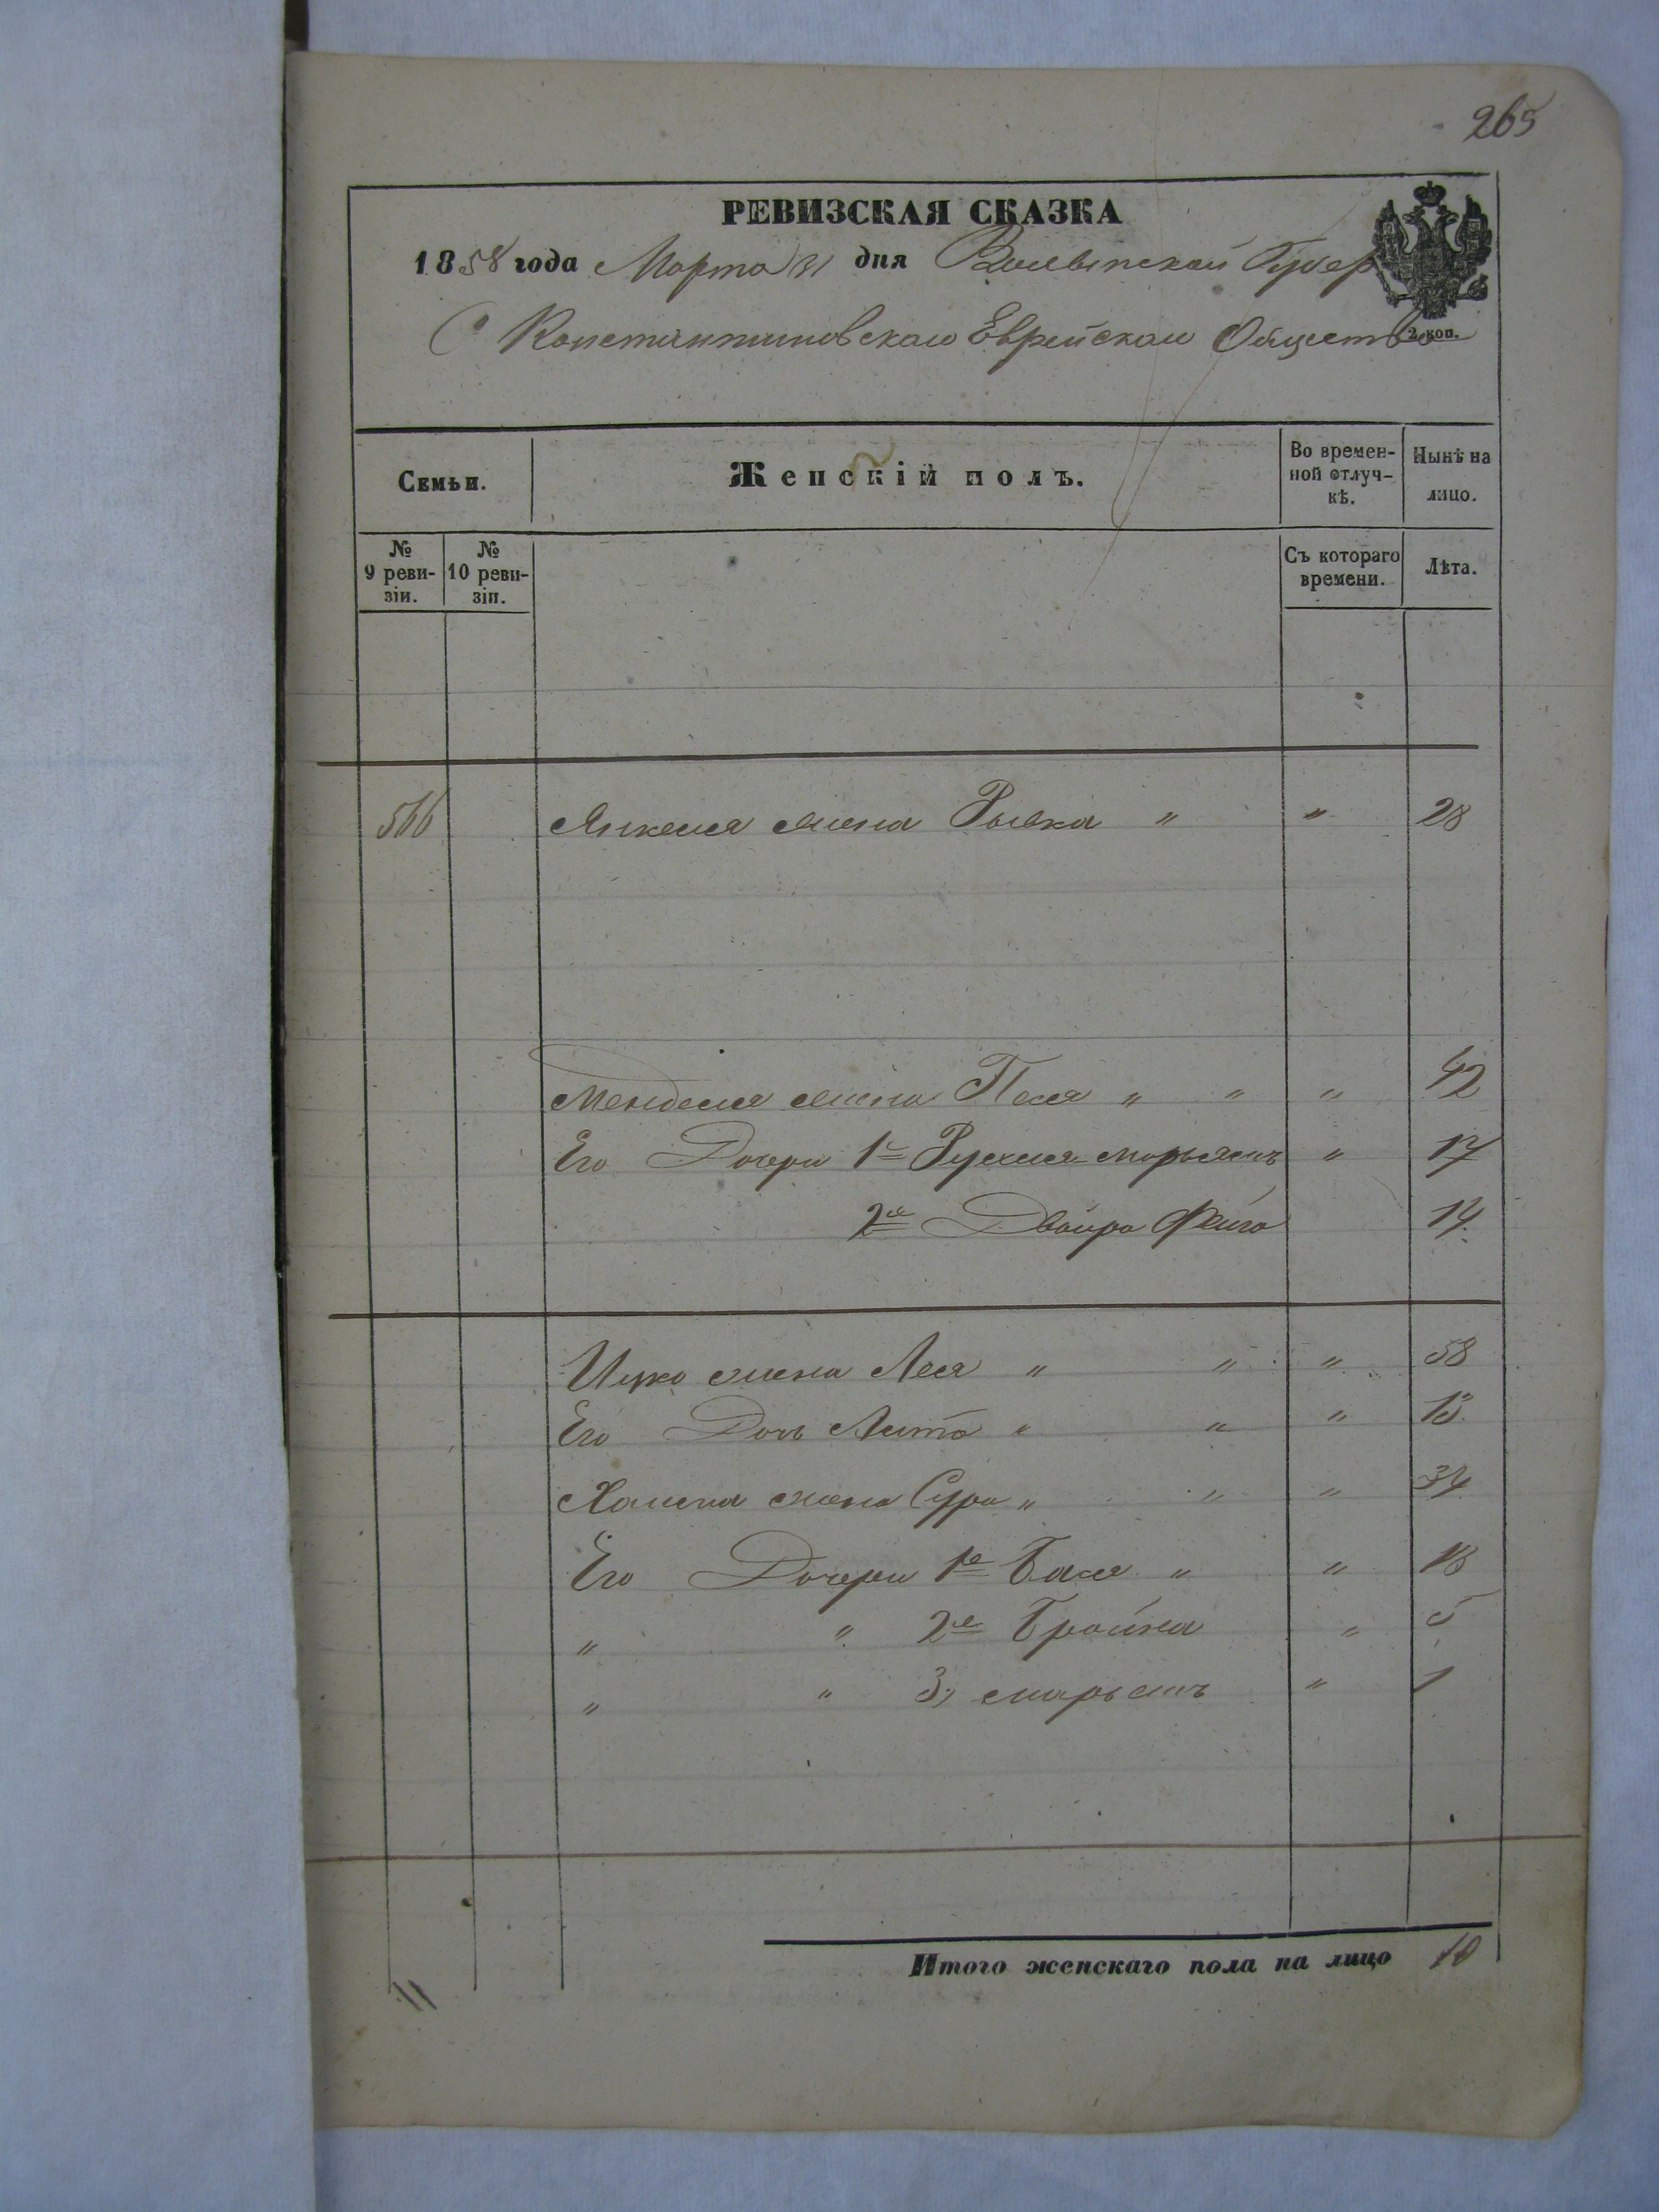 265
РЕВИЗСКАЯ СКАЗКА
1858 года Марта 31 дня Волынской Губер
С Константиновскаго Еврейскаго Общества
2 коп.
Семьи.
Женскій полъ.
Во времен-
ной отлуч-
кѣ.
Нынѣ на
лицо.
№
9 реви-
зіи.
№
10 реви-
зіи.
Съ котораго
времени.
Лѣта.
566 Янкеля жена Рывка " " 28
Менделя жена Песя " " " 42
Его Дочери 1е Рухля Марьямъ " 17
2е Двойра Фейга 14
Ицко жена Лея " " " 58
Его Дочь " " "
жена Сура " " " 34
Его Дочери 1е Бася " " 18
" " 2е Бройна " 5
" " 3, Марьемъ " 1
Итого женскаго пола на лицо 10